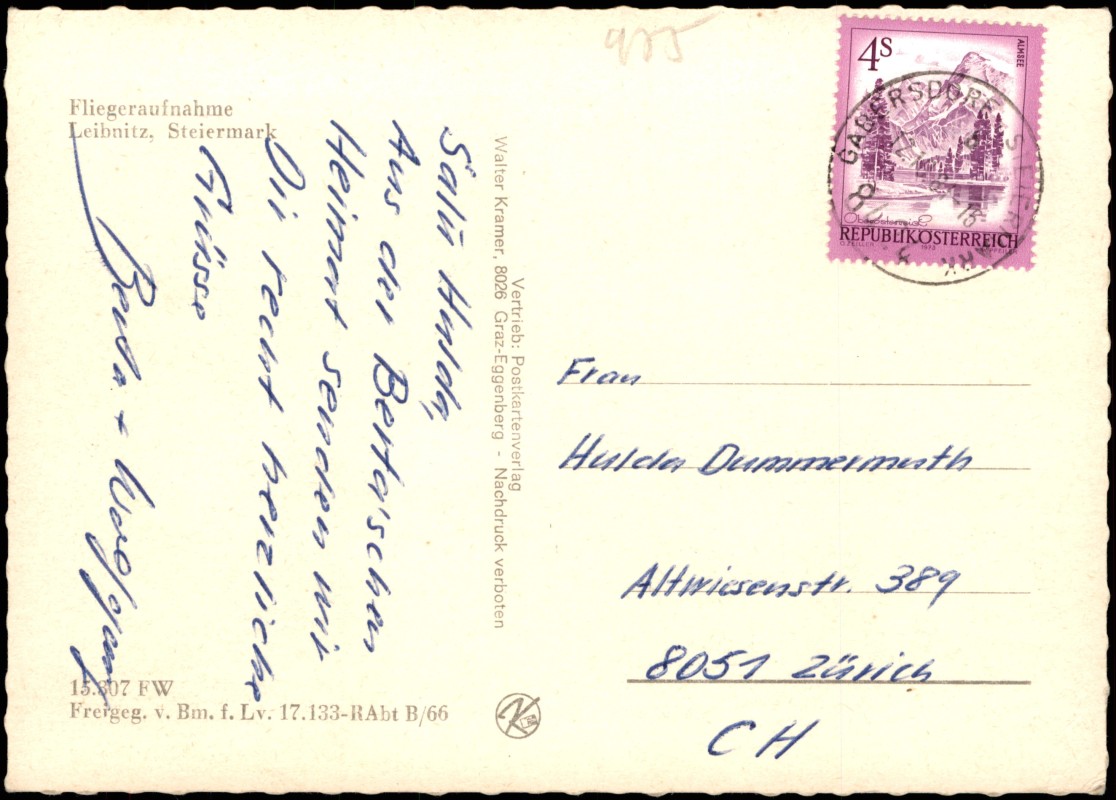 Fliegeraufnahme
Leibnitz, Steiermark
Salü Hulda,
Aus der Berta'schen
Heimat senden wir
Dir recht herzliche
Grüsse
Berta + Wolfgang
15.807 FW
Frergeg. v. Bm. f. Lv. 17.133-RAbt B/66
Vertrieb: Postkartenverlag
Walter Kramer, 8026 Graz-Eggenberg - Nachdruck verboten
975
4S
ALMSEE
REPUBLIK ÖSTERREICH
1973
GABERSDORF STEIERMARK
Frau
Hulda Dummermuth
Altwiesenstr. 389
8051 Zürich
CH